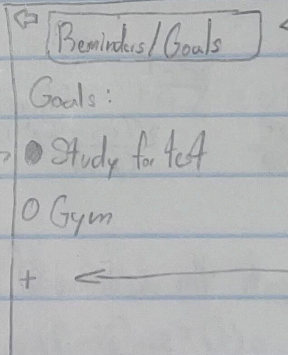 Reminders/Goals
Goals:
Study for test
Gym
+